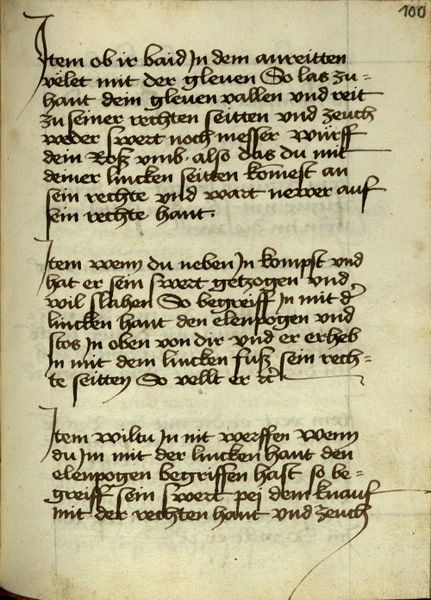 100
Item ob ir baid In dem anreitten
velet mit der gleuen So las zu=
hant dein gleuen vallen vnd reit
zu seiner rechten seitten vnd zeuch
weder swert noch messer würff
dein Roß vmb also das du mit
deiner lincken seitten komest an
sein rechte vnd wart newer auf
sein rechte hant.
Item wenn du neben In kompst vnd
hat er sein swert getzogen vnd
wil slahen So begreiff In mit der
lincken hant den elenpogen vnd
stos In oben von dir vnd er erheb
In mit dem lincken fuß sein rech=
te seitten So vellt er etc
Item wiltu In nit werffen wenn
du Im mit der lincken hant den
elenpogen begriffen hast so be=
greiff sein swert pei dem knauf
mit der rechten hant vnd zeuch